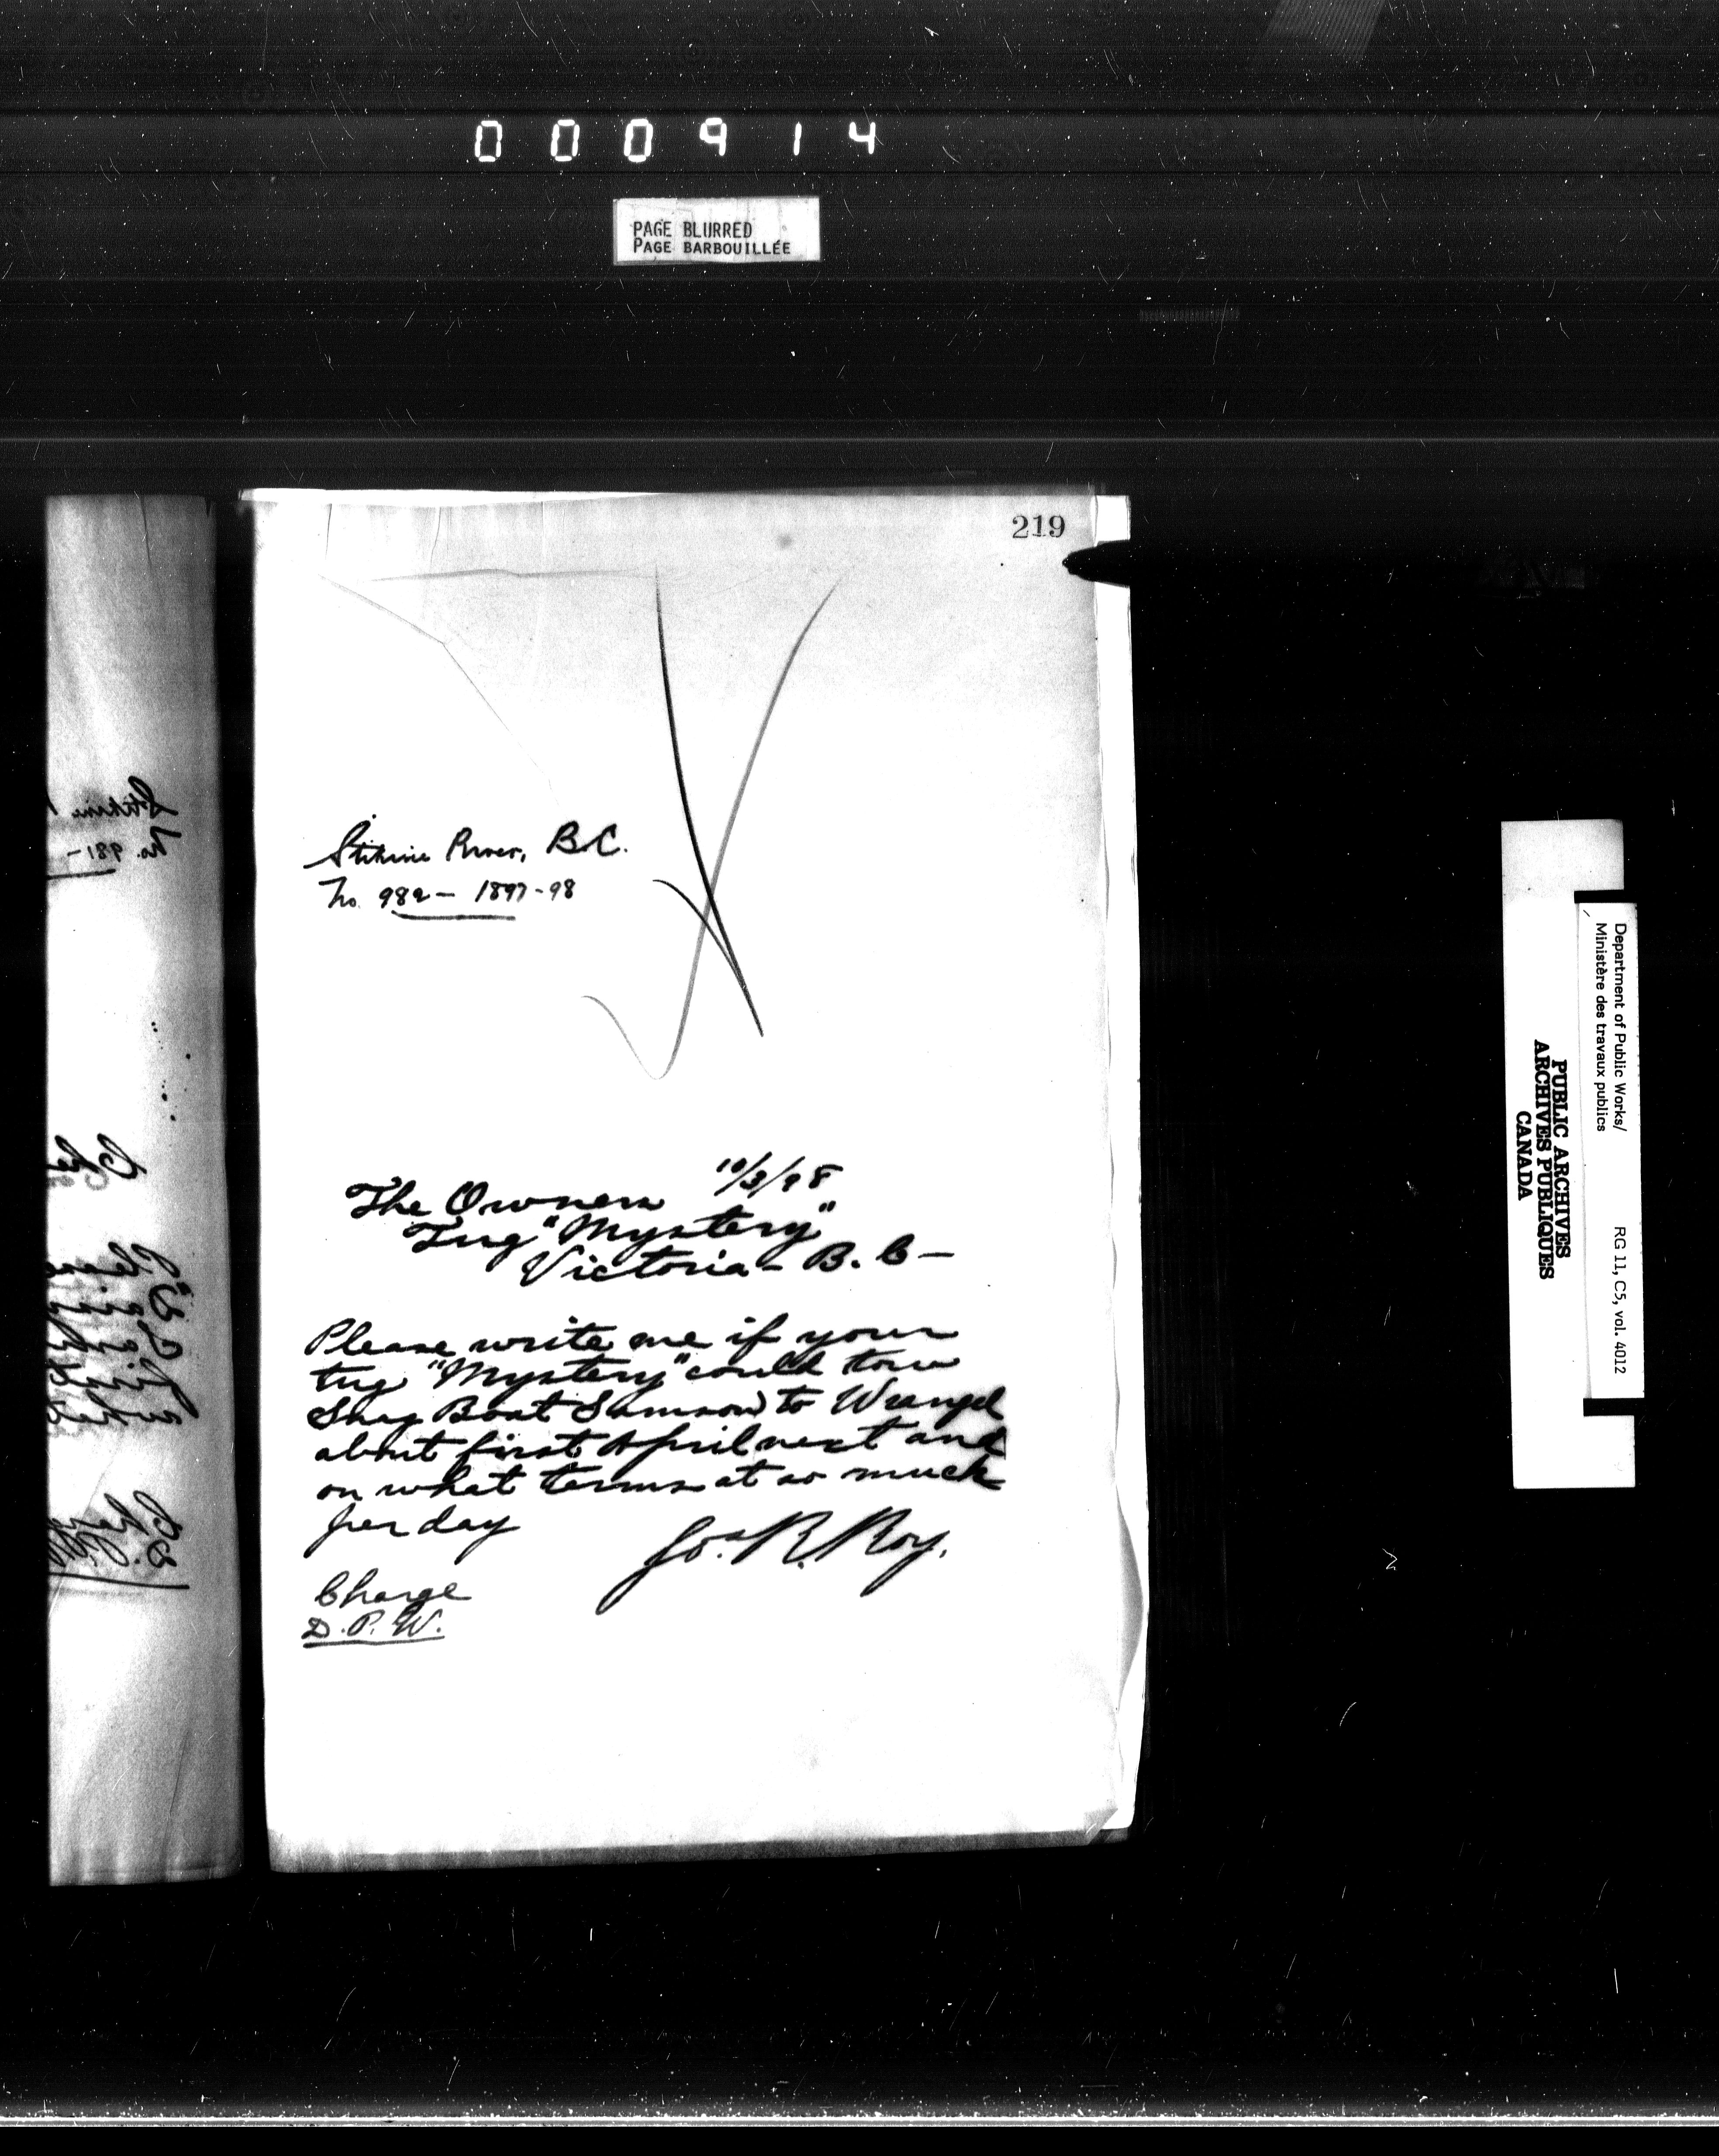 000914
PAGE BLURRED
PAGE BARBOUILLÉE
219
Stikine River, B.C.
No. 982 - 1897-98
10/3/98
The Owners
Tug "Mystery"
Victoria - B. C -
Please write me if your
tug "Mystery" could tow
Snag Boat Samson to Wrangel
about first April next and
on what terms at so much
per day
Jos. R. Roy.
Charge
D. P. W.
Stikine
No. 981-
Department of Public Works/
Ministère des travaux publics
RG 11, C5, vol. 4012
PUBLIC ARCHIVES
ARCHIVES PUBLIQUES
CANADA